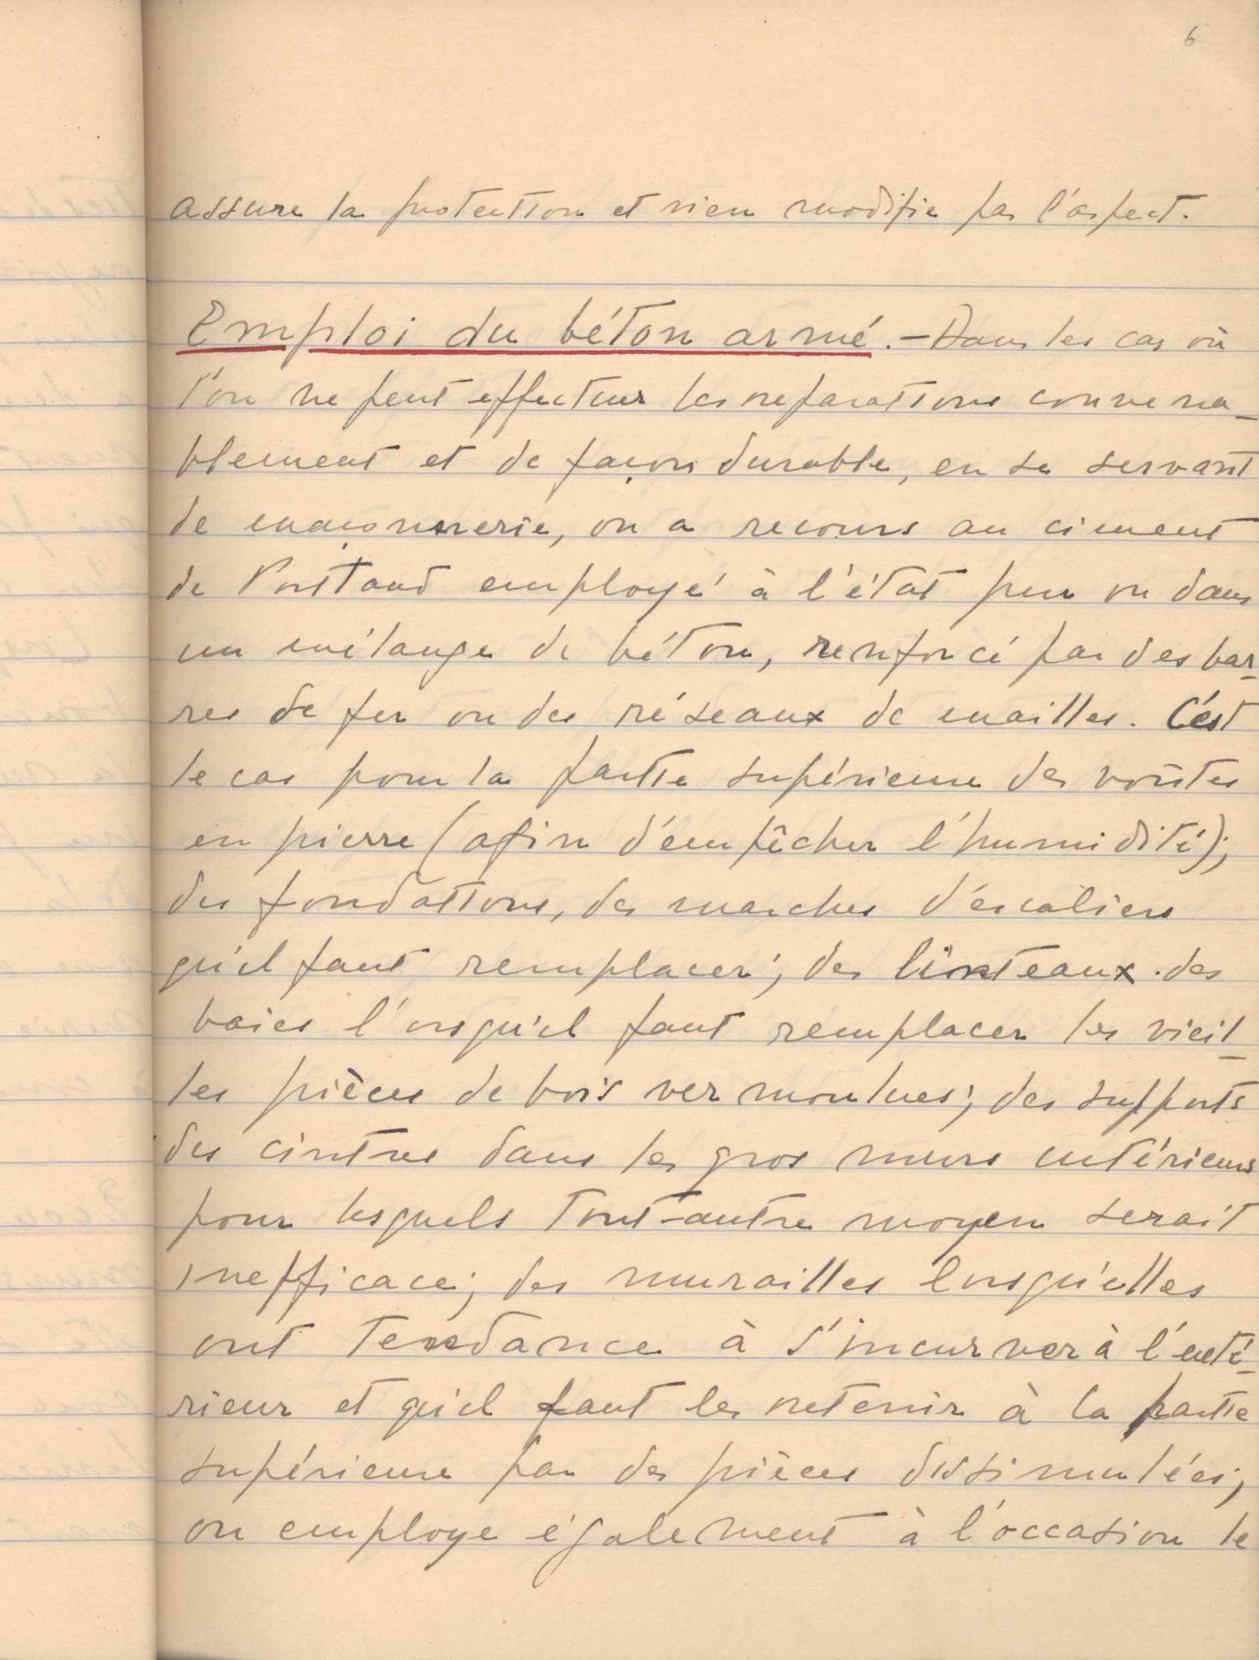 6
assure la protection et rien modifie pas l'aspect.
Emploi du béton armé. - Dans les cas où
l'on ne peut effectuer les reparations convena-
blement et de façon durable, en se servant
de maçonnerie, on a recours au ciment
de Portland employé à l'état pur ou dans
un mélange de béton, renforcé par des bar-
res de fer ou des réseaux de mailles. C'est
le cas pour la partie supérieure des voûtes
en pierre (afin d'empêcher l'humidité);
des fondations, des marches d'escaliers
qu'il faut remplacer; des linteaux des
baies l'orsqu'il faut remplacer les vieil-
les pièces de bois vermoulues; des supports
des cintres dans les gros murs intérieurs
pour lesquels tout-autre moyen serait
inefficace; des murailles lorsqu'elles
ont tendance à s'incurver à l'exté-
rieur et qu'il faut les retenir à la partie
supérieure par des pièces dissimulées;
on employe également à l'occasion le